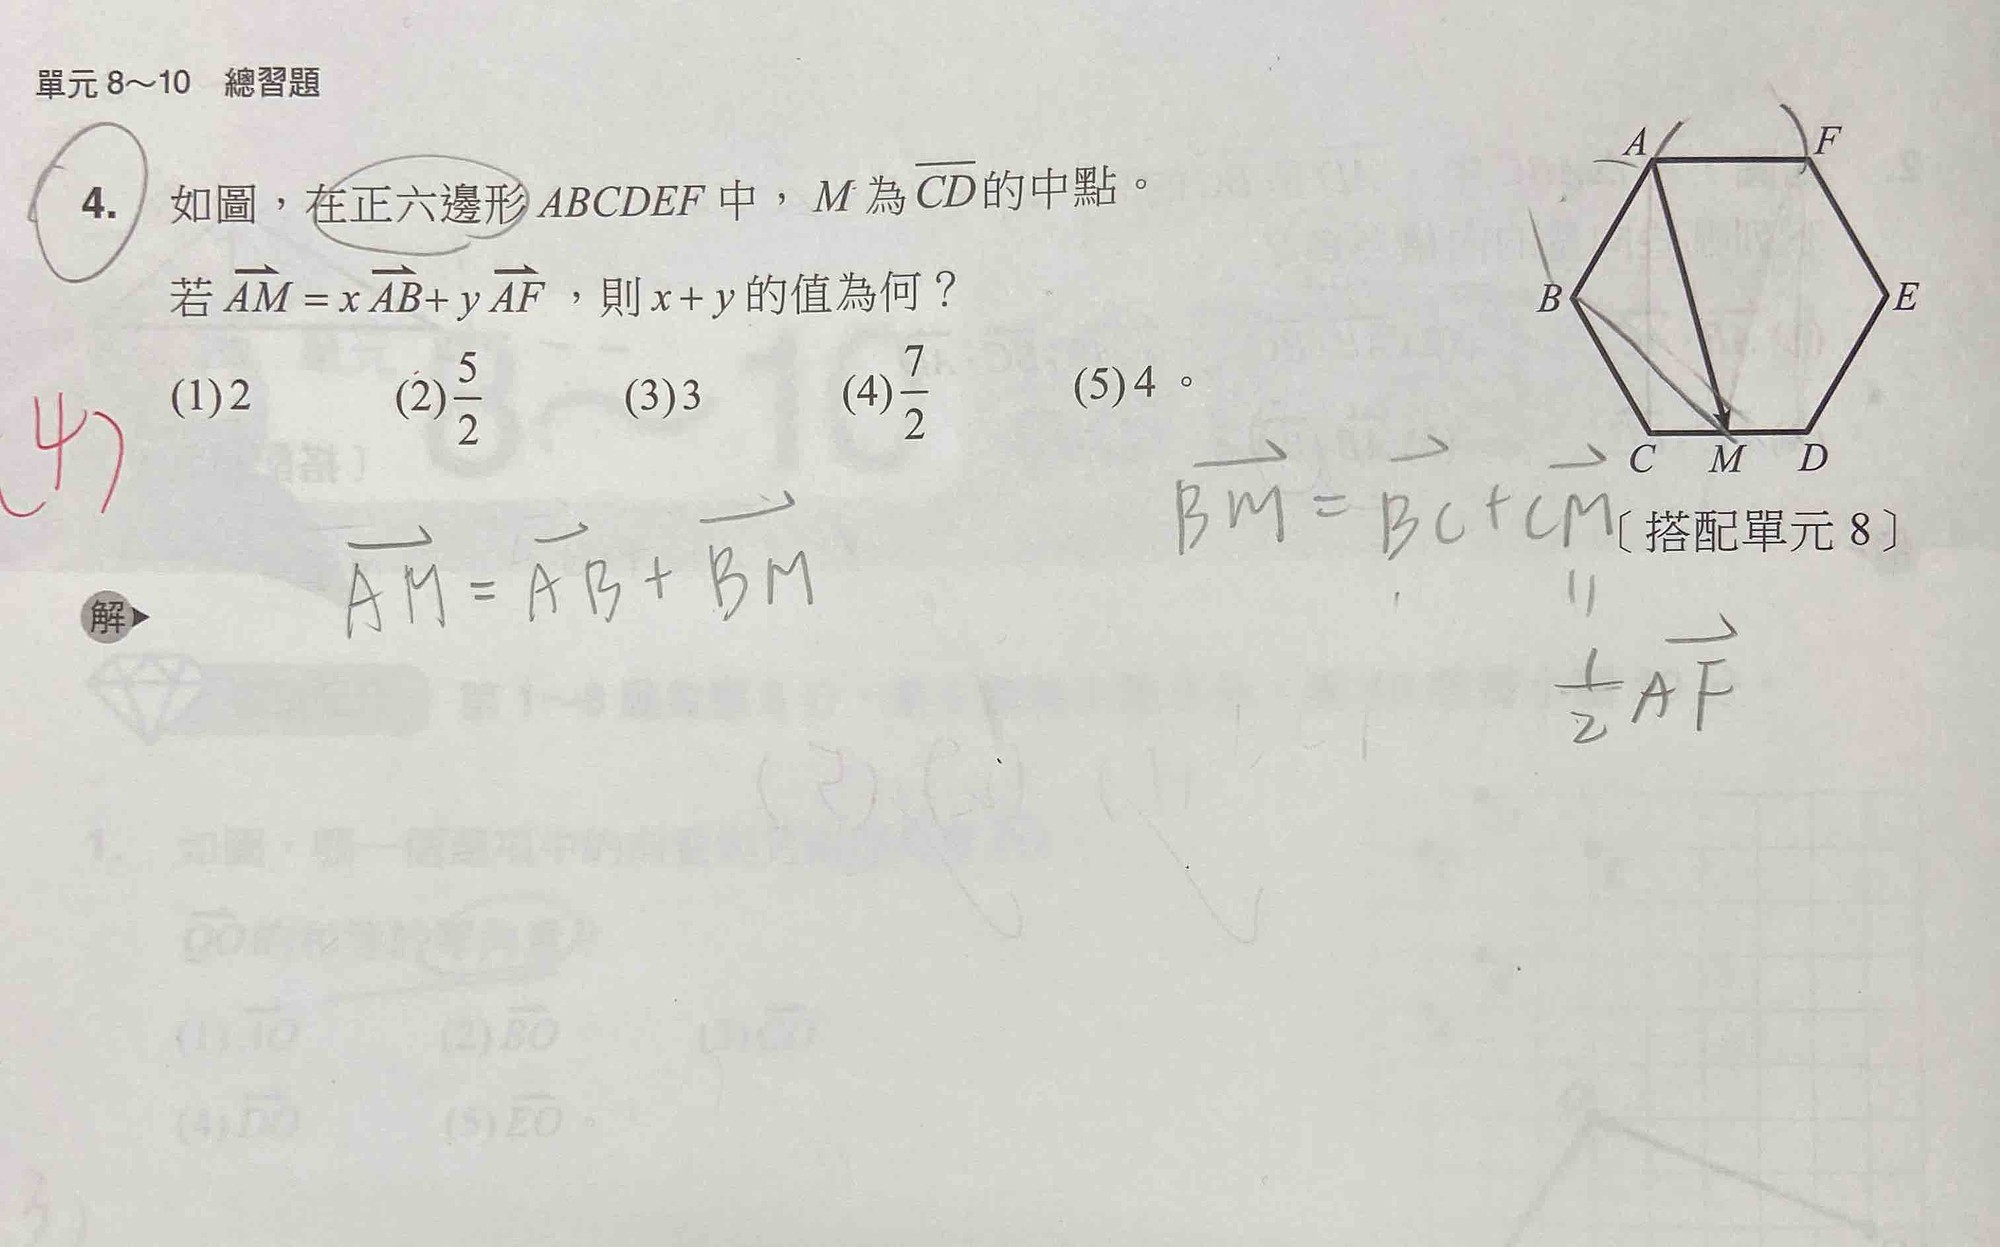 單元 8～10 總習題
4. 如圖，在正六邊形 ABCDEF 中， M 為 \overline{CD} 的中點。
若 \overrightarrow{AM} = x \overrightarrow{AB} + y \overrightarrow{AF} ，則 x + y 的值為何？
(1) 2 (2) \frac{5}{2} (3) 3 (4) \frac{7}{2} (5) 4 。
(4)
A F
B E
C M D
〔搭配單元 8〕
\overrightarrow{BM} = \overrightarrow{BC} + \overrightarrow{CM}
\overrightarrow{AM} = \overrightarrow{AB} + \overrightarrow{BM}
=
\frac{1}{2} \overrightarrow{AF}
解